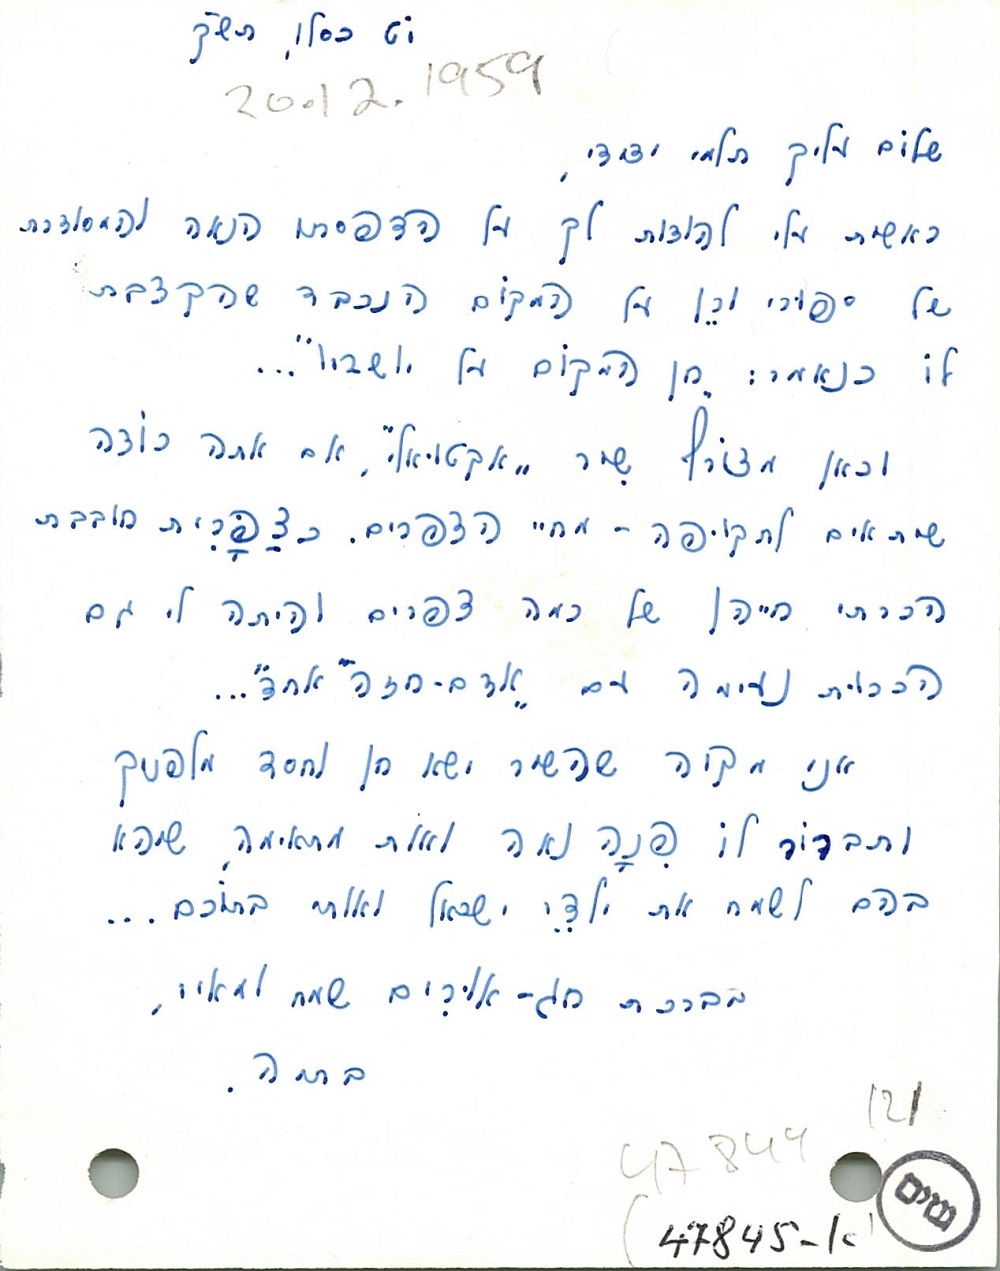 יט כסלו, תש"ך
20.12.1959
שלום עליך תלמי ידידי,
ראשית עלי להודות לך על הדפסתו הנאה והמסודרת
של ספורי וכֵן על המקום הנכבד שהקצבת
לו כנאמר: „חן המקום על יושביו"...
וכאן מצורף שִיר „אקטואלי", אם אתה רוצה
שיתאים לתקופה - מחיי הצפרים. כצַפָּרִית חובבת
הכרתי חייהן של כמה צפרים והיתה לי גם
הכרות נעימה עם „אדם-חזה" אחד"...
אני מקוה שהשיר ישא חן וחסד מלפניך
ותבחר לו פִּנָה נאה ואות מתאימה, שיהא
בהם לשמח את ילדֵי ישראל ואותי בתוכם...
בברכת חג-אורים שמח ומאיר,
ברמה.
121
47844
(47845-א'